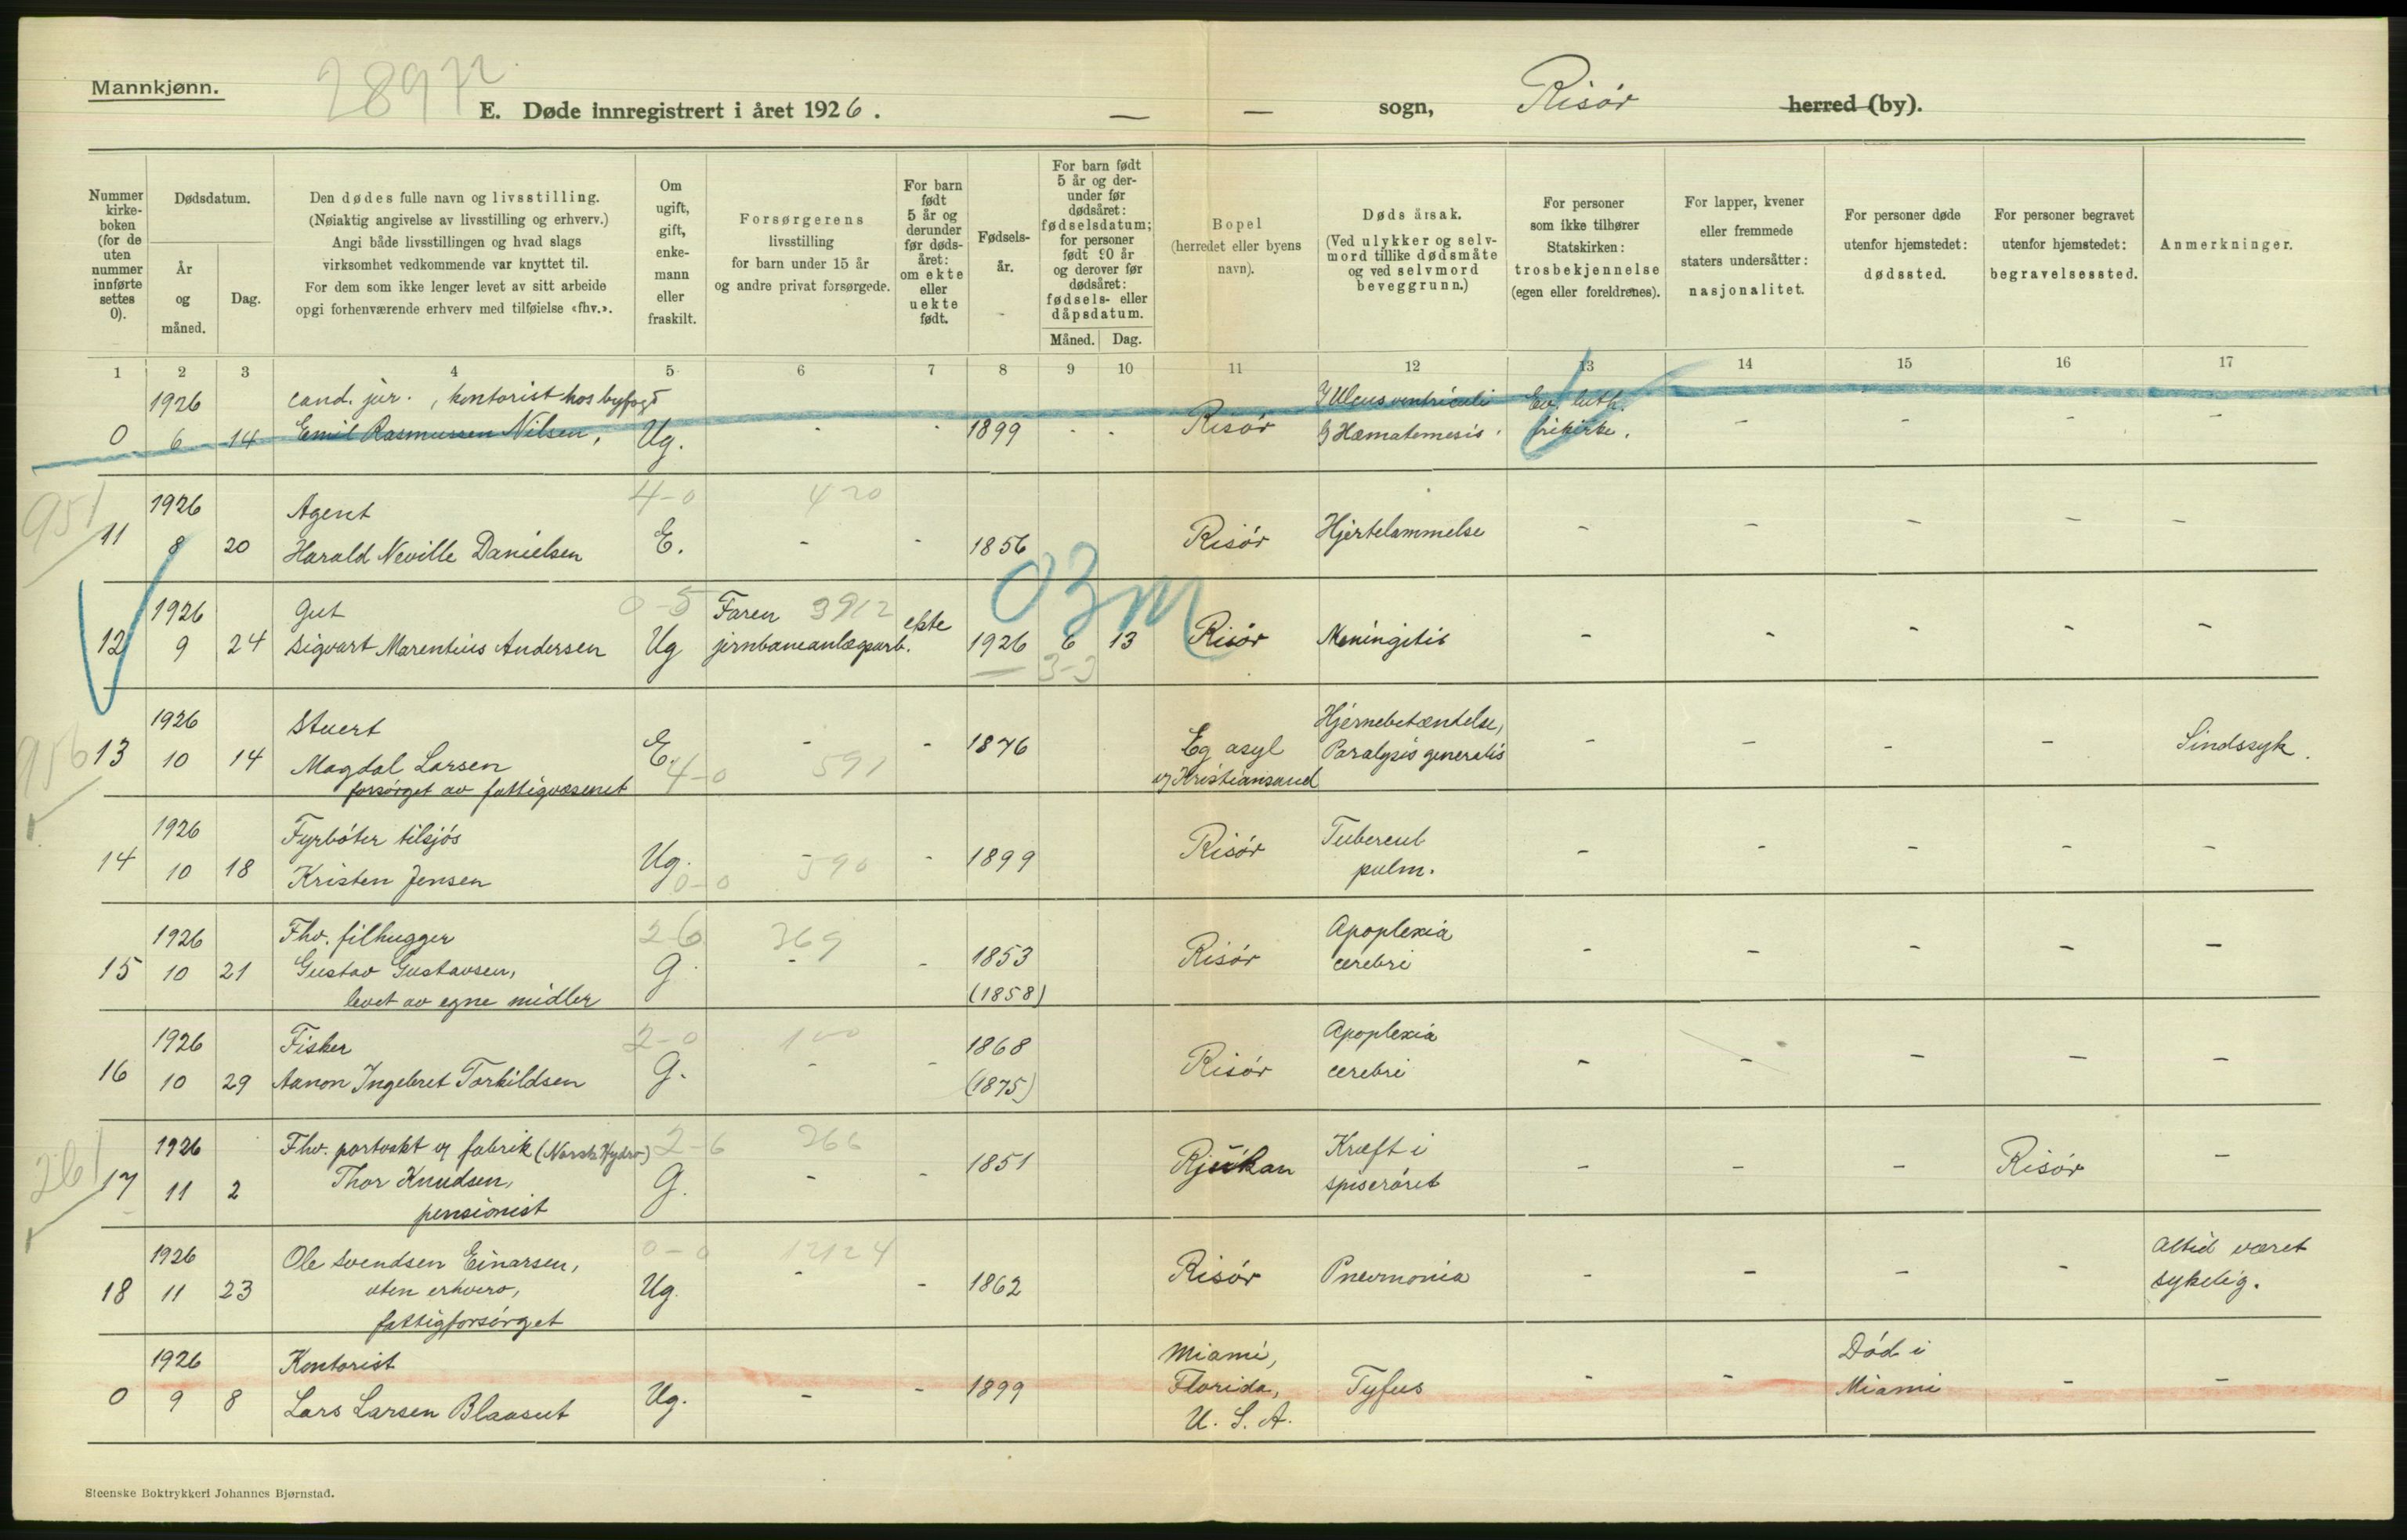 Mannkjønn.
2897 n
E. Døde innregistrert i året 1926.
— — sogn, Risør herred (by).
Nummer kirke-boken (for de uten nummer innførte settes 0).
Dødsdatum.
År og måned.
Dag.
Den dødes fulle navn og livsstilling.
(Nøiaktig angivelse av livsstilling og erhverv.)
Angi både livsstillingen og hvad slags
virksomhet vedkommende var knyttet til.
For dem som ikke lenger levet av sitt arbeide
opgi forhenværende erhverv med tilføielse «fhv.».
Om ugift, gift, enke-mann eller fraskilt.
Forsørgerens
livsstilling
for barn under 15 år
og andre privat forsørgede.
For barn født 5 år og derunder før døds-året: om ekte eller uekte født.
Fødsels-år.
For barn født 5 år og der-under før dødsåret: fødselsdatum; for personer født 90 år og derover før dødsåret: fødsels- eller dåpsdatum.
Måned. Dag.
Bopel
(herredet eller byens navn).
Døds årsak.
(Ved ulykker og selv-mord tillike dødsmåte og ved selvmord beveggrunn.)
For personer som ikke tilhører Statskirken: trosbekjennelse (egen eller foreldrenes).
For lapper, kvener eller fremmede staters undersåtter: nasjonalitet.
For personer døde utenfor hjemstedet: dødssted.
For personer begravet utenfor hjemstedet: begravelsessted.
Anmerkninger.
1 2 3 4 5 6 7 8 9 10 11 12 13 14 15 16 17
1926 cand. jur., kontorist hos byfogd Ulcus ventriculi Ev. luth.
0 6 14 Emil Rasmussen Nilsen, Ug. - - 1899 - - Risør Hæmatemesis. frikirke. - - - -
951 1926 Agent 4-0 420
11 8 20 Harald Neville Danielsen E. - - 1856 Risør Hjertelammelse - - - - -
03m
1926 Gut 0-5 Faren 3912 ekte
12 9 24 Sigvart Marentius Andersen Ug jernbaneanlægsarb. 1926 6 13 Risør Meningitis - - - - -
3-3
956 1926 Stuert Hjernebetændelse,
13 10 14 Magdal Larsen E. - - 1876 Eg asyl Paralysis generalis - - - - Sindssyk.
forsørget av fattigvæsenet 4-0 591 Kristiansand
1926 Fyrbøter tilsjøs Tubercul
14 10 18 Kristen Jensen Ug. 0-0 - 590 - 1899 Risør pulm. - - - - -
1926 Fhv. filhugger 2-6 369 Apoplexia
15 10 21 Gustav Gustavsen, G. - - 1853 Risør cerebri - - - - -
levet av egne midler (1858)
1926 Fisker 2-0 100 1868 Apoplexia
16 10 29 Aanon Ingebret Torkildsen G. - - (1875) Risør cerebri - - - - -
261 1926 Fhv. portvakt fabrik (Norsk Hydro) 2-6 266 Kræft i
17 11 2 Thor Knudsen, G. - - 1851 Rjukan spiserøret - - - Risør -
pensionist
1926 Ole Svendsen Einarsen, 0-0 12124 Altid været
18 11 23 uten erhverv, Ug. - - 1862 Risør Pneumonia - - - - sykelig.
fattigforsørget
1926 Kontorist Miami, Død i
0 9 8 Lars Larsen Blaasut Ug. - - 1899 Florida, Tyfus - - Miami - -
U. S. A.
Steenske Boktrykkeri Johannes Bjørnstad.